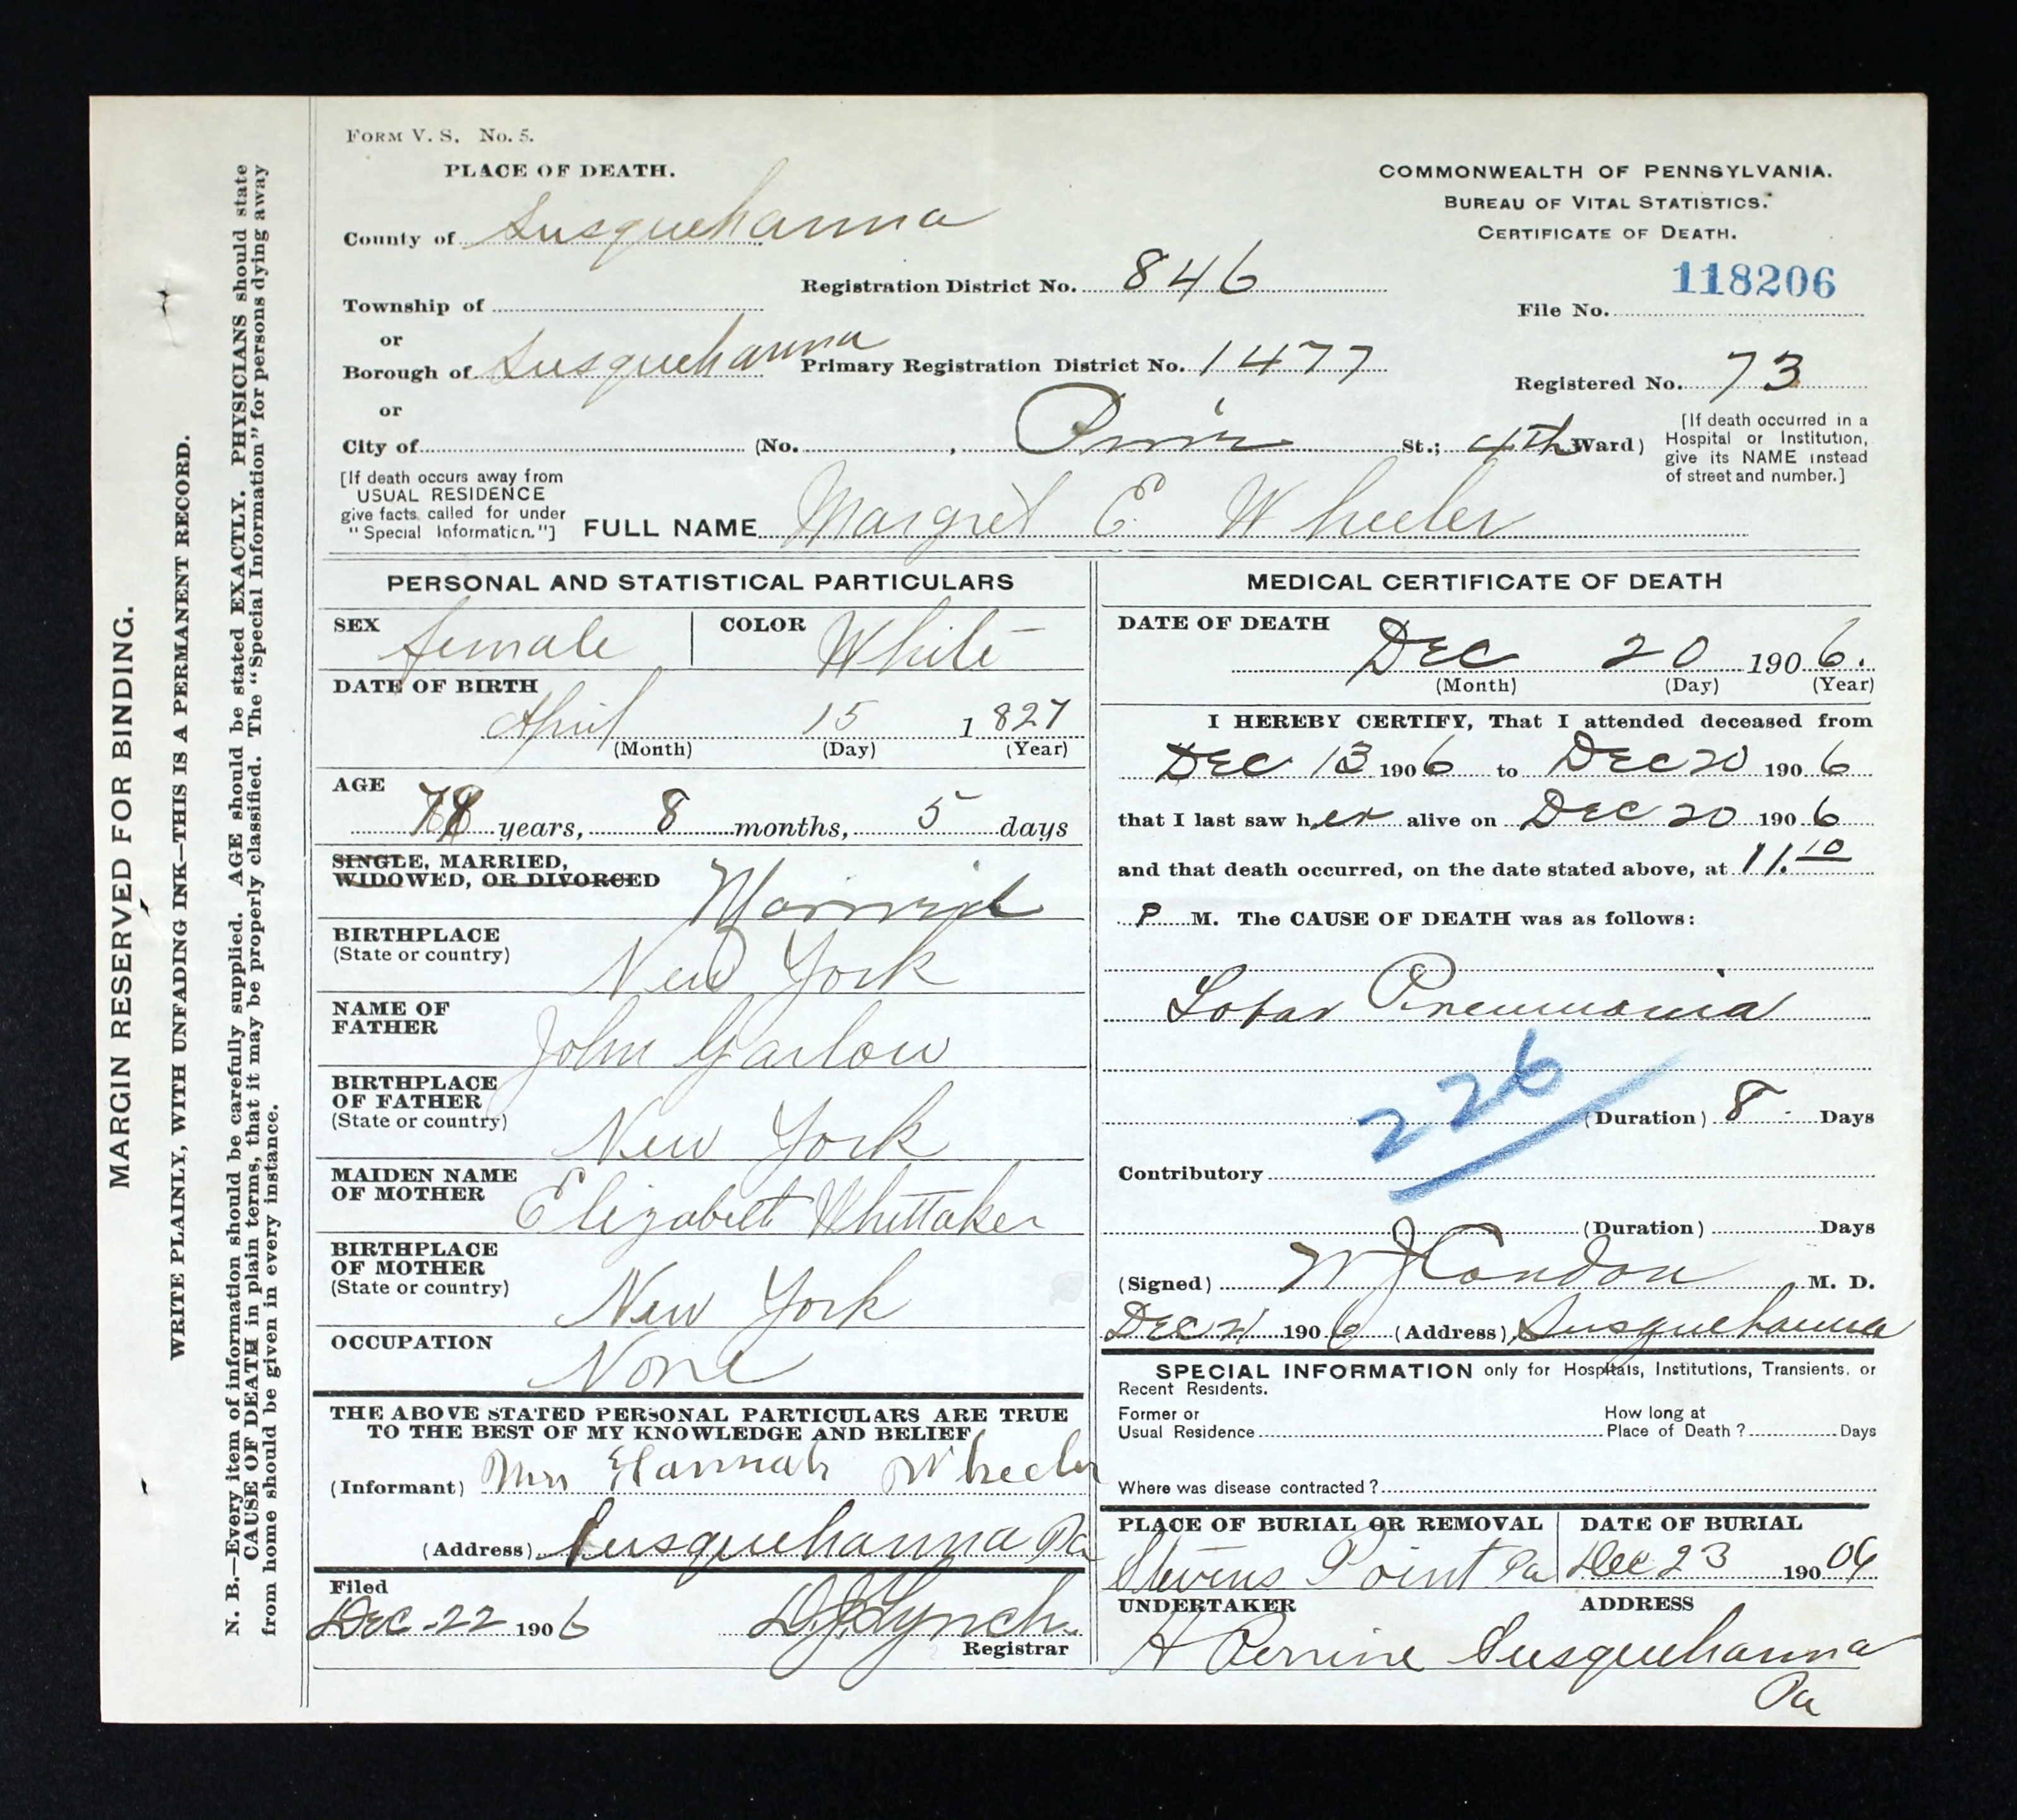 MARGIN RESERVED FOR BINDING.
WRITE PLAINLY, WITH UNFADING INK—THIS IS A PERMANENT RECORD.
N. B.—Every item of information should be carefully supplied. AGE should be stated EXACTLY. PHYSICIANS should state
CAUSE OF DEATH in plain terms, that it may be properly classified. The "Special Information" for persons dying away
from home should be given in every instance.
FORM V. S. No. 5.
PLACE OF DEATH.
County of Susquehanna
Township of
or
Borough of Susquehanna
or
City of
Registration District No. 846
Primary Registration District No. 1477
(No. , St.; 4th Ward)
COMMONWEALTH OF PENNSYLVANIA.
BUREAU OF VITAL STATISTICS.
CERTIFICATE OF DEATH.
118206
File No.
Registered No. 73
[If death occurred in a
Hospital or Institution,
give its NAME instead
of street and number.]
[If death occurs away from
USUAL RESIDENCE
give facts called for under
"Special Information."]
FULL NAME Margret E. Wheeler
PERSONAL AND STATISTICAL PARTICULARS
SEX female
COLOR White
DATE OF BIRTH
April 15 1827
(Month) (Day) (Year)
AGE
years, 8 months, 5 days
SINGLE, MARRIED,
WIDOWED, OR DIVORCED Married
BIRTHPLACE
(State or country) New York
NAME OF
FATHER John Garlow
BIRTHPLACE
OF FATHER
(State or country) New York
MAIDEN NAME
OF MOTHER Elizabeth Whittaker
BIRTHPLACE
OF MOTHER
(State or country) New York
OCCUPATION None
THE ABOVE STATED PERSONAL PARTICULARS ARE TRUE
TO THE BEST OF MY KNOWLEDGE AND BELIEF
(Informant) Mrs Hannah Wheeler
(Address) Susquehanna Pa
Filed
Dec. 22 1906 D. J. Lynch
Registrar
MEDICAL CERTIFICATE OF DEATH
DATE OF DEATH
Dec 20 1906.
(Month) (Day) (Year)
I HEREBY CERTIFY, That I attended deceased from
Dec 13 1906 to Dec 20 1906
that I last saw her alive on Dec 20 1906
and that death occurred, on the date stated above, at 11.10
P M. The CAUSE OF DEATH was as follows:
Lobar Pneumonia
226
(Duration) 8 Days
Contributory
(Duration) Days
(Signed) W J Condon M. D.
Dec 21 1906 (Address) Susquehanna
SPECIAL INFORMATION only for Hospitals, Institutions, Transients, or
Recent Residents.
Former or
Usual Residence
How long at
Place of Death? Days
Where was disease contracted?
PLACE OF BURIAL OR REMOVAL
Stevens Point Pa
DATE OF BURIAL
Dec 23 19006
UNDERTAKER
H Perrine
ADDRESS
Susquehanna
Pa